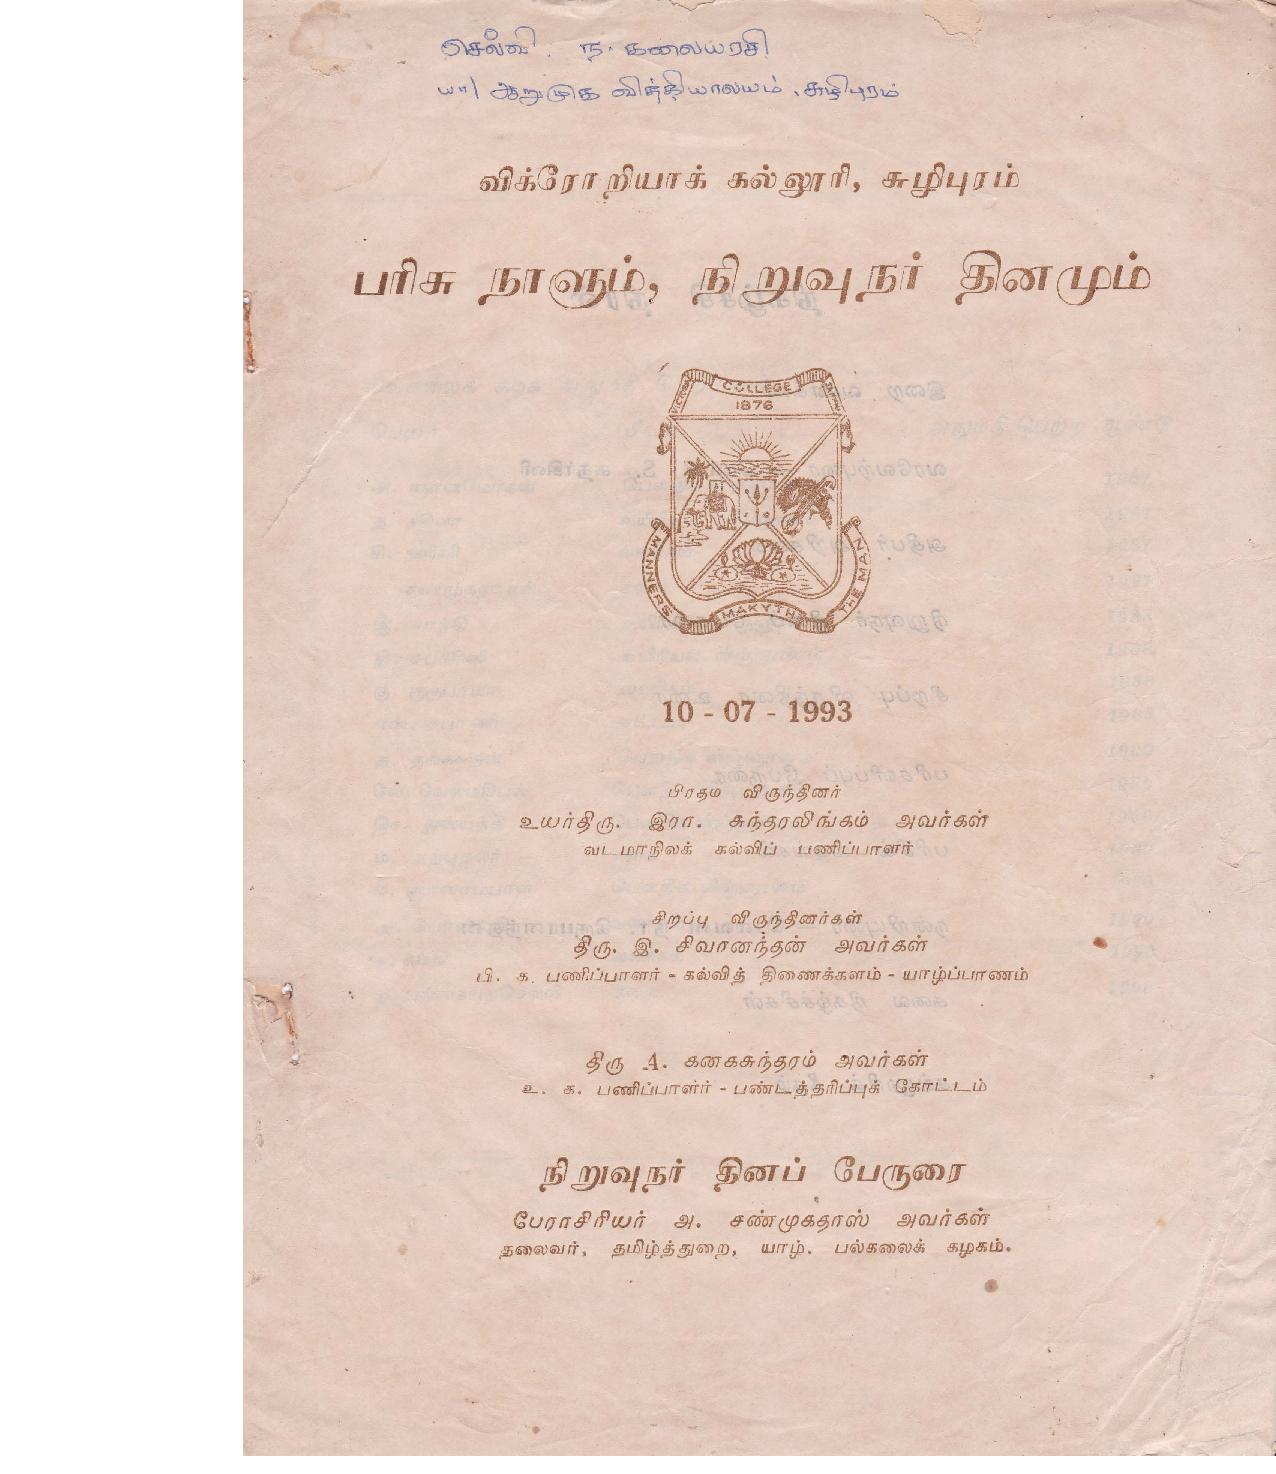 செல்வி. ந. கலையரசி
யா/ ஆறுமுக வித்தியாலயம், சுழிபுரம்
விக்ரோறியாக் கல்லூரி, சுழிபுரம்
பரிசு நாளும், நிறுவுநர் தினமும்
VICTORIA COLLEGE
1876
MANNERS MAKYTH THE MAN
10 - 07 - 1993
பிரதம விருந்தினர்
உயர்திரு. இரா. சுந்தரலிங்கம் அவர்கள்
வடமாநிலக் கல்விப் பணிப்பாளர்
சிறப்பு விருந்தினர்கள்
திரு. இ. சிவானந்தன் அவர்கள்
பி. க. பணிப்பாளர் - கல்வித் திணைக்களம் - யாழ்ப்பாணம்
திரு A. கனகசுந்தரம் அவர்கள்
உ. க. பணிப்பாளர் - பண்டத்தரிப்புக் கோட்டம்
நிறுவுநர் தினப் பேருரை
பேராசிரியர் அ. சண்முகதாஸ் அவர்கள்
தலைவர், தமிழ்த்துறை, யாழ். பல்கலைக் கழகம்.